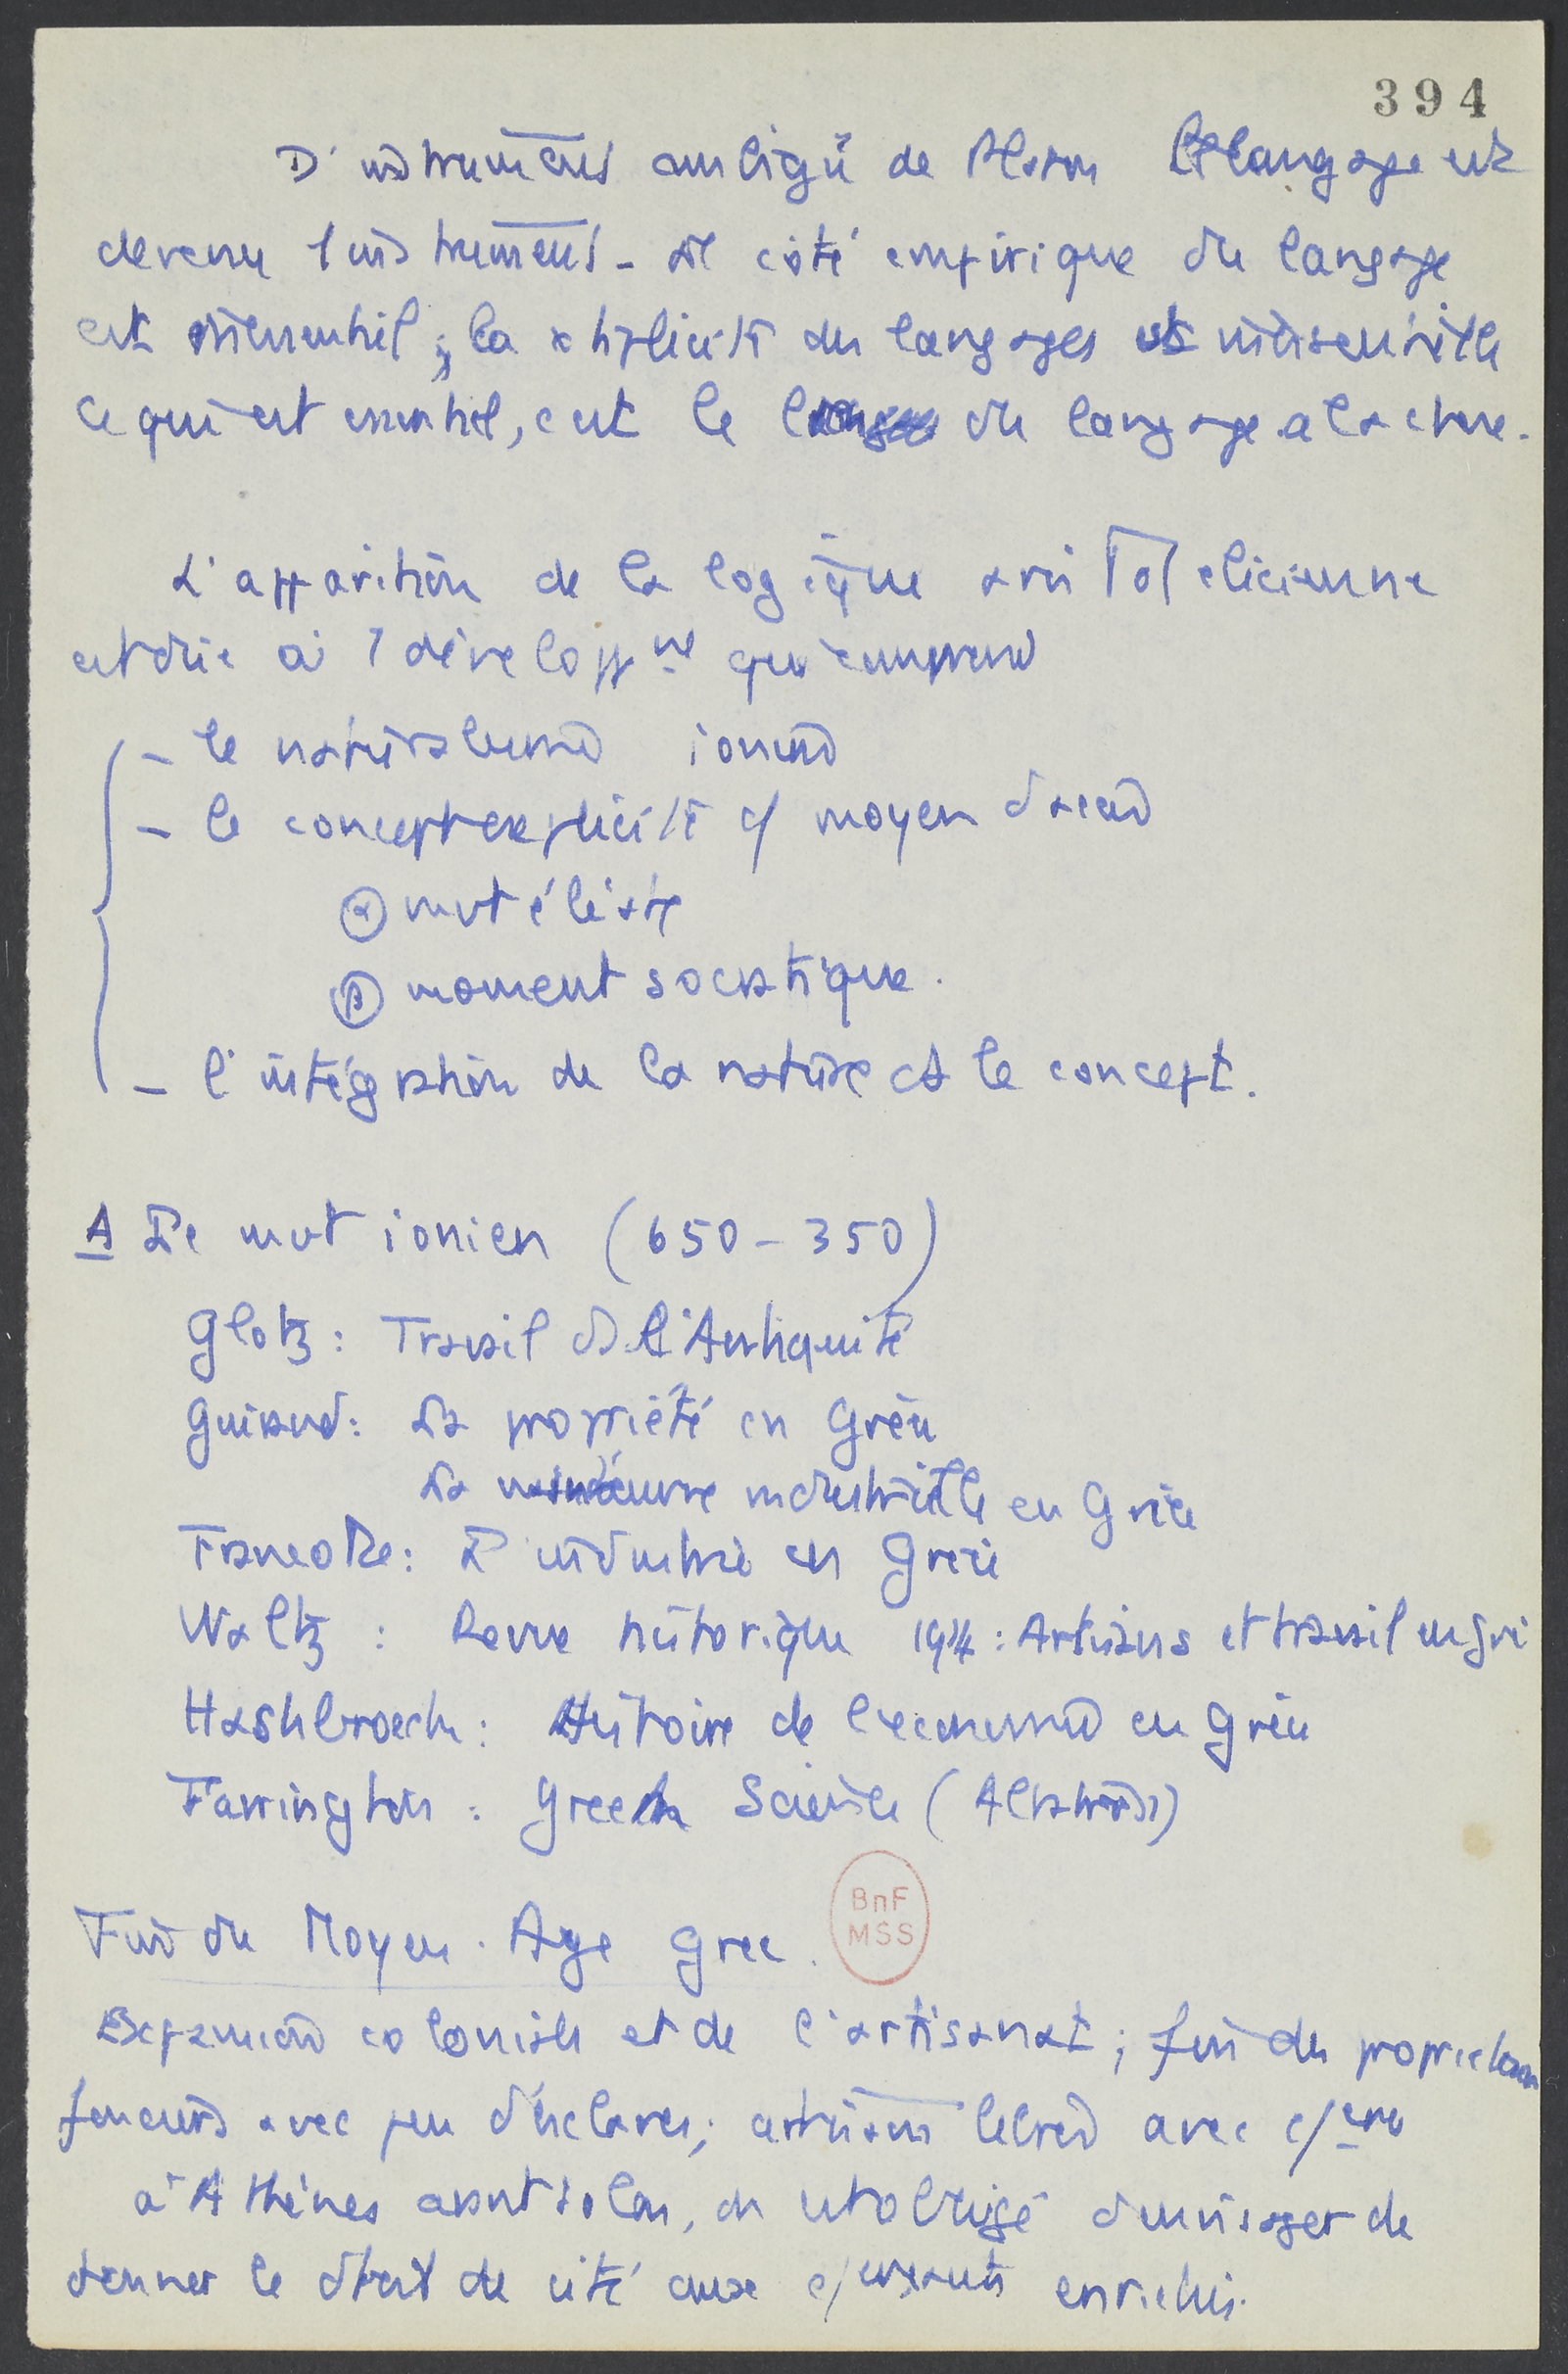 394
D'instrument ambigü de Platon le langage est
devenu 1 instrument - Le côté empirique du langage
est inessentiel ; la des langages est
Ce qui est essentiel, c'est le du langage à la chose.
L'apparition de la logique aristotelicienne
est due à 1 développmt qui comprend
- le naturalisme ionien
- le concept explicité c/ moyen d
α mvt éléate
β moment socratique.
- l'intégration de la nature ds le concept.
A Le mvt ionien (650-350)
Glotz : Travail ds l'Antiquité
Guiraud : La propriété en Grèce
La main d'œuvre industrielle en Grèce
Francotte : L'industrie en Grèce
Waltz : Revue historique 1914 : Artisans et travail en Grè
Hashbroech : Histoire de l'économie en Grèce
Farrington : Greek Science
BnF
MSS
Fin du Moyen-Age grec.
Expansion coloniale et de l'artisanat ; fin des
fonciers avec peu d'esclaves ; artisans avec
à Athènes avant Solon, on est obligé d'envisager de
donner le droit de cité aux c/merçants enrichis.